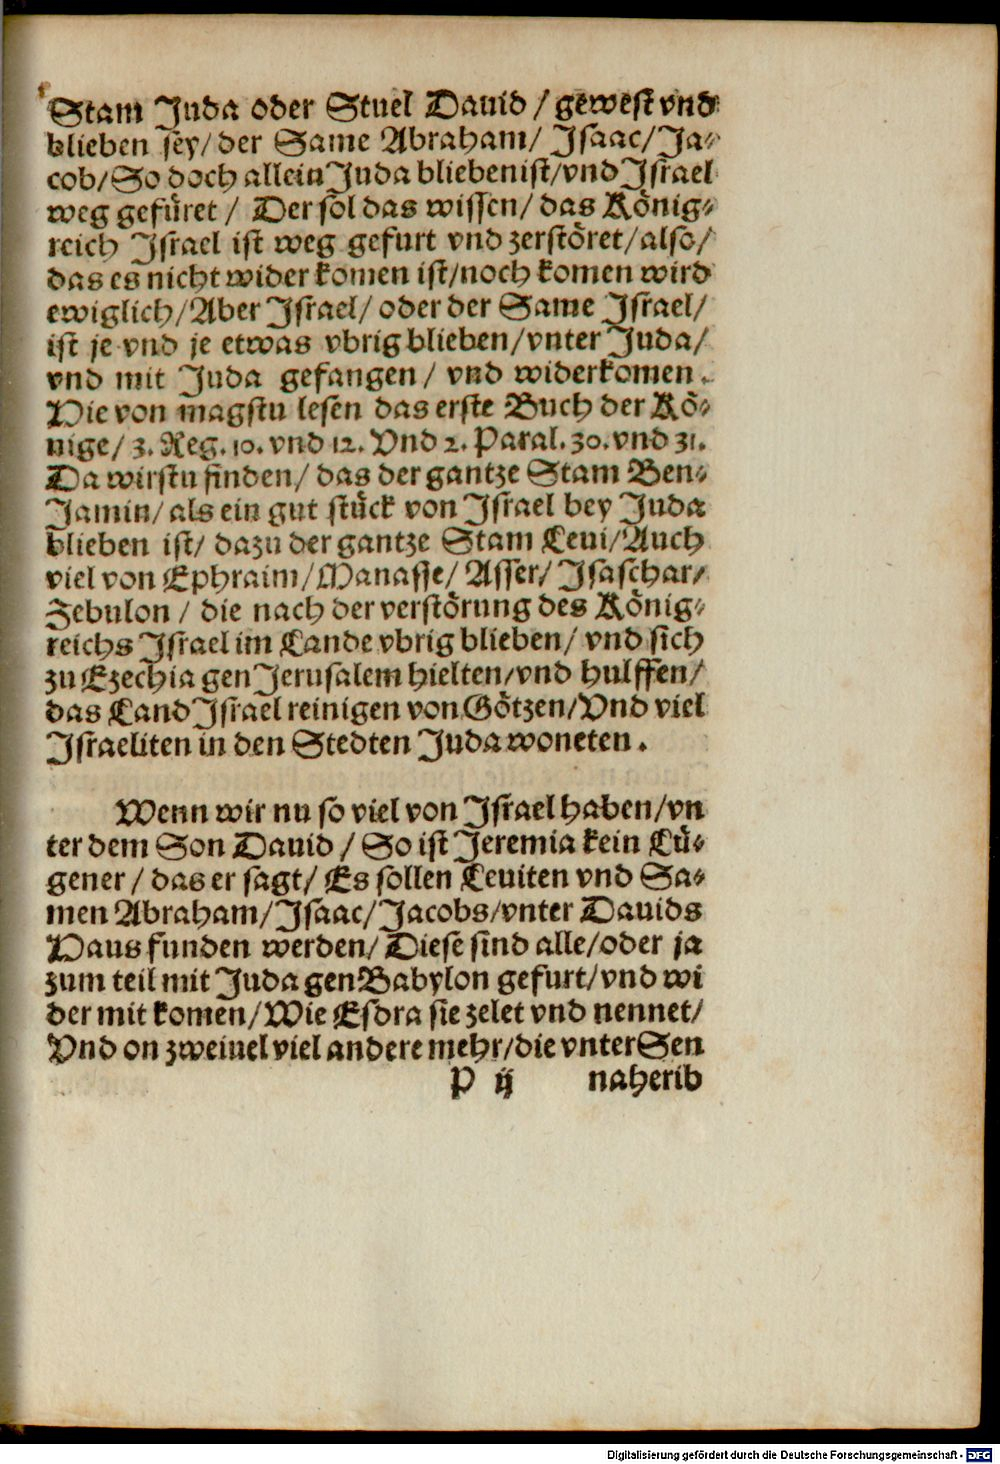 Stam Juda oder Stuel Dauid / gewest vnd
blieben sey/ der Same Abraham/ Isaac/ Ja⸗
cob/ So doch allein Juda blieben ist/ vnd Israel
weg gefüret / Der sol das wissen/ das König⸗
reich Israel ist weg gefurt vnd zerstöret/ also/
das es nicht wider komen ist/ noch komen wird
ewiglich/ Aber Israel/ oder der Same Israel/
ist je vnd je etwas vbrig blieben/ vnter Juda/
vnd mit Juda gefangen / vnd widerkomen.
Hie von magstu lesen das erste Buch der Kö⸗
nige/ 3. Reg. 10. vnd 12. Vnd 2. Paral. 30. vnd 31.
Da wirstu finden/ das der gantze Stam Ben⸗
Jamin/ als ein gut stück von Israel bey Juda
blieben ist/ dazu der gantze Stam Leui/ Auch
viel von Ephraim/ Manasse/ Asser/ Isaschar/
Zebulon / die nach der verstörung des König⸗
reichs Israel im Lande vbrig blieben/ vnd sich
zu Ezechia gen Jerusalem hielten/ vnd hulffen/
das Land Israel reinigen von Götzen/ Vnd viel
Israeliten in den Stedten Juda woneten.
Wenn wir nu so viel von Israel haben/ vn
ter dem Son Dauid / So ist Jeremia kein Lü⸗
gener / das er sagt/ Es sollen Leuiten vnd Sa⸗
men Abraham/ Isaac/ Jacobs/ vnter Dauids
Haus funden werden/ Diese sind alle/ oder ja
zum teil mit Juda gen Babylon gefurt/ vnd wi
der mit komen/ Wie Esdra sie zelet vnd nennet/
Vnd on zweiuel viel andere mehr/ die vnter Sen
P ij naherib
Digitalisierung gefördert durch die Deutsche Forschungsgemeinschaft - DFG